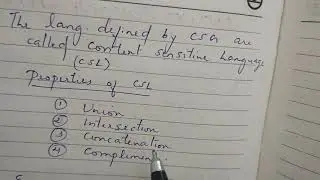 The lang. defined by CSG are
called Context Sensitive Language
(CSL)
Properties of CSL
① Union
② Intersection
③ Concatenation
④ Complement